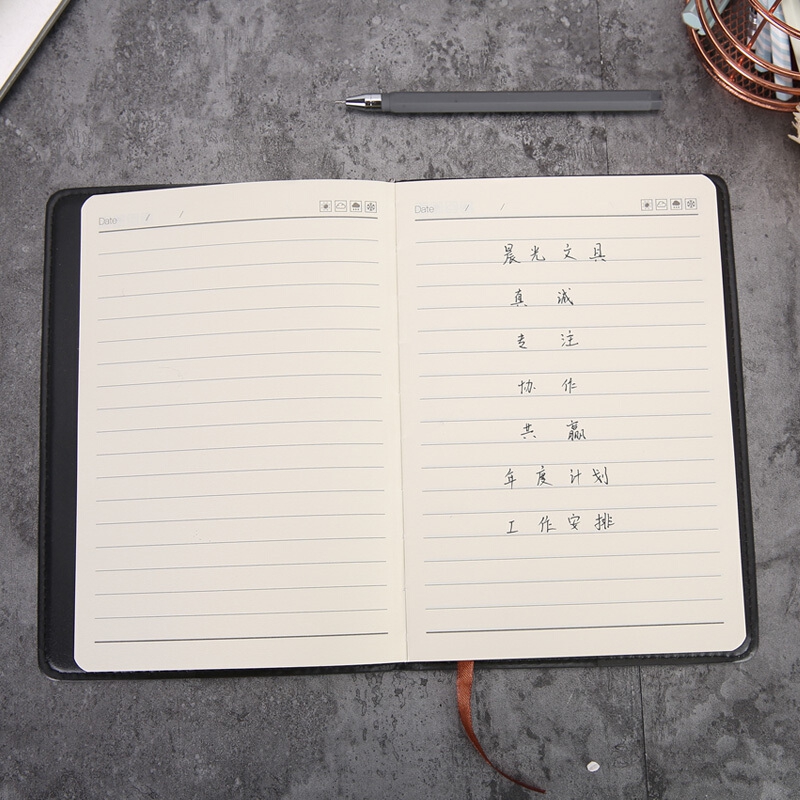 Date / /
Date / /
晨光文具
真 诚
专 注
协 作
共 赢
年度计划
工作安排